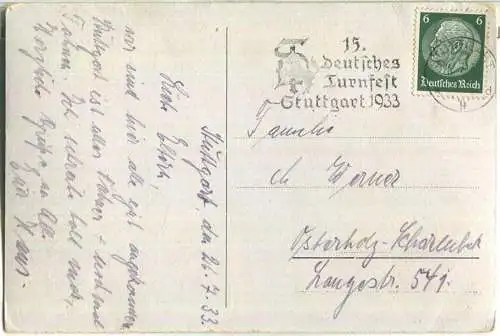 Stuttgart, den 26.7.33.
Liebe Eltern,
wir sind hier alle gut angekommen.
Stuttgart ist alles Fahnen + nochmal
Fahnen. Ich schreibe bald mehr.
Herzliche Grüße an Alle
Euer Hans.
15.
Deutsches
Turnfest
Stuttgart 1933
6 6
Deutsches Reich
Familie
Werner
Osterholz-Scharmbeck
Langestr. 541.